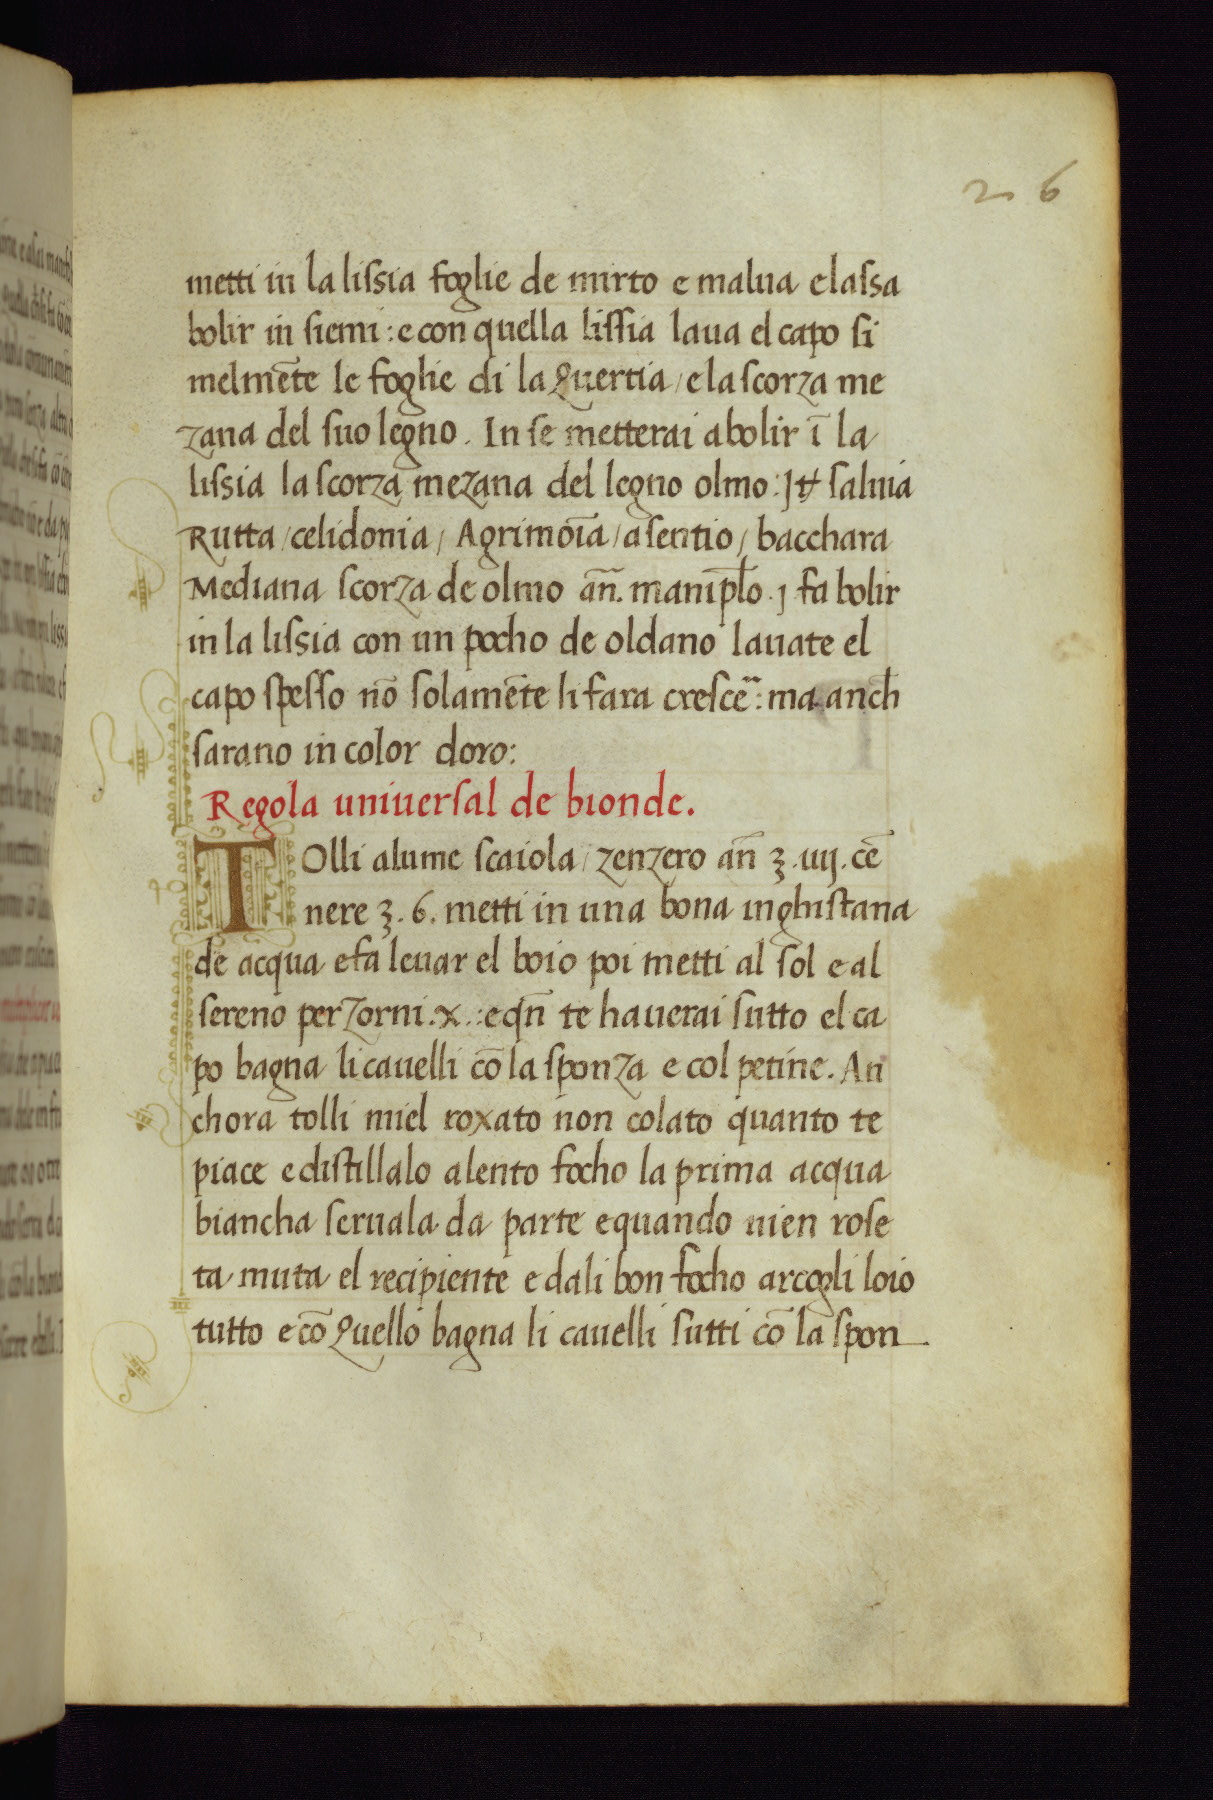 26
metti in la lissia foglie de mirto e malua e lassa
bolir in siemi : e con quella lissia laua el capo si
melmēte le foglie di la Quertia / e la scorza me
zana del suo legno . In se metterai a bolir ī la
lissia la scorza mezana del legno olmo : Jt saluia
Rutta / celidonia / Agrimoīa / asentio / bacchara
Mediana scorza de olmo an̄. manip̄lo . j fa bolir
in la lissia con un pocho de oldano lauate el
capo spesso nō solamēte li fara crescē : ma anch
sarano in color doro :
Regola uniuersal de bionde.
TOlli alume scaiola / zenzero an̄ ʒ . iiij . cē
nere ʒ . 6 . metti in una bona inghistana
de acqua e fa leuar el boio poi metti al sol e al
sereno per zorni . x . : e qn̄ te hauerai sutto el ca
po bagna li cauelli cō la sponza e col petine . An
chora tolli miel roxato non colato quanto te
piace e distillalo a lento focho la prima acqua
biancha seruala da parte e quando uien rose
ta muta el recipiente e dali bon focho arcogli loio
tutto e cō Quello bagna li cauelli sutti cō la spon